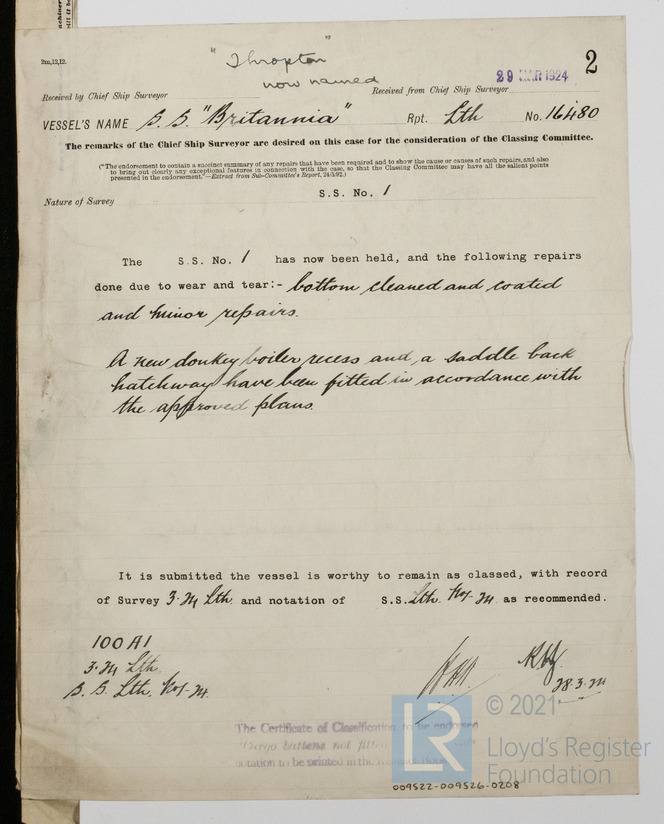 2m,12,12.
"Thropton"
now named
29 MAR 1924
2
Received by Chief Ship Surveyor
Received from Chief Ship Surveyor
VESSEL'S NAME S.S. "Britannia" Rpt. Lth No. 16480
The remarks of the Chief Ship Surveyor are desired on this case for the consideration of the Classing Committee.
("The endorsement to contain a succinct summary of any repairs that have been required and to show the cause or causes of such repairs, and also
to bring out clearly any exceptional features in connection with the case, so that the Classing Committee may have all the salient points
presented in the endorsement."—Extract from Sub-Committee's Report, 24/5/92.)
Nature of Survey S.S. No. 1
The S.S. No. 1 has now been held, and the following repairs
done due to wear and tear:- bottom cleaned and coated
and minor repairs.
A new donkey boiler recess and a saddle back
hatchway have been fitted in accordance with
the approved plans.
It is submitted the vessel is worthy to remain as classed, with record
of Survey 3.24 Lth. and notation of S.S. Lth. No1-24 as recommended.
100A1
3.24 Lth.
S.S. Lth. No1-24.
28.3.24
The Certificate of Classification to be endorsed
"Cargo battens not fitted
notation to be printed in the Register Book
LR
© 2021
Lloyd's Register
Foundation
009522-009526-0208